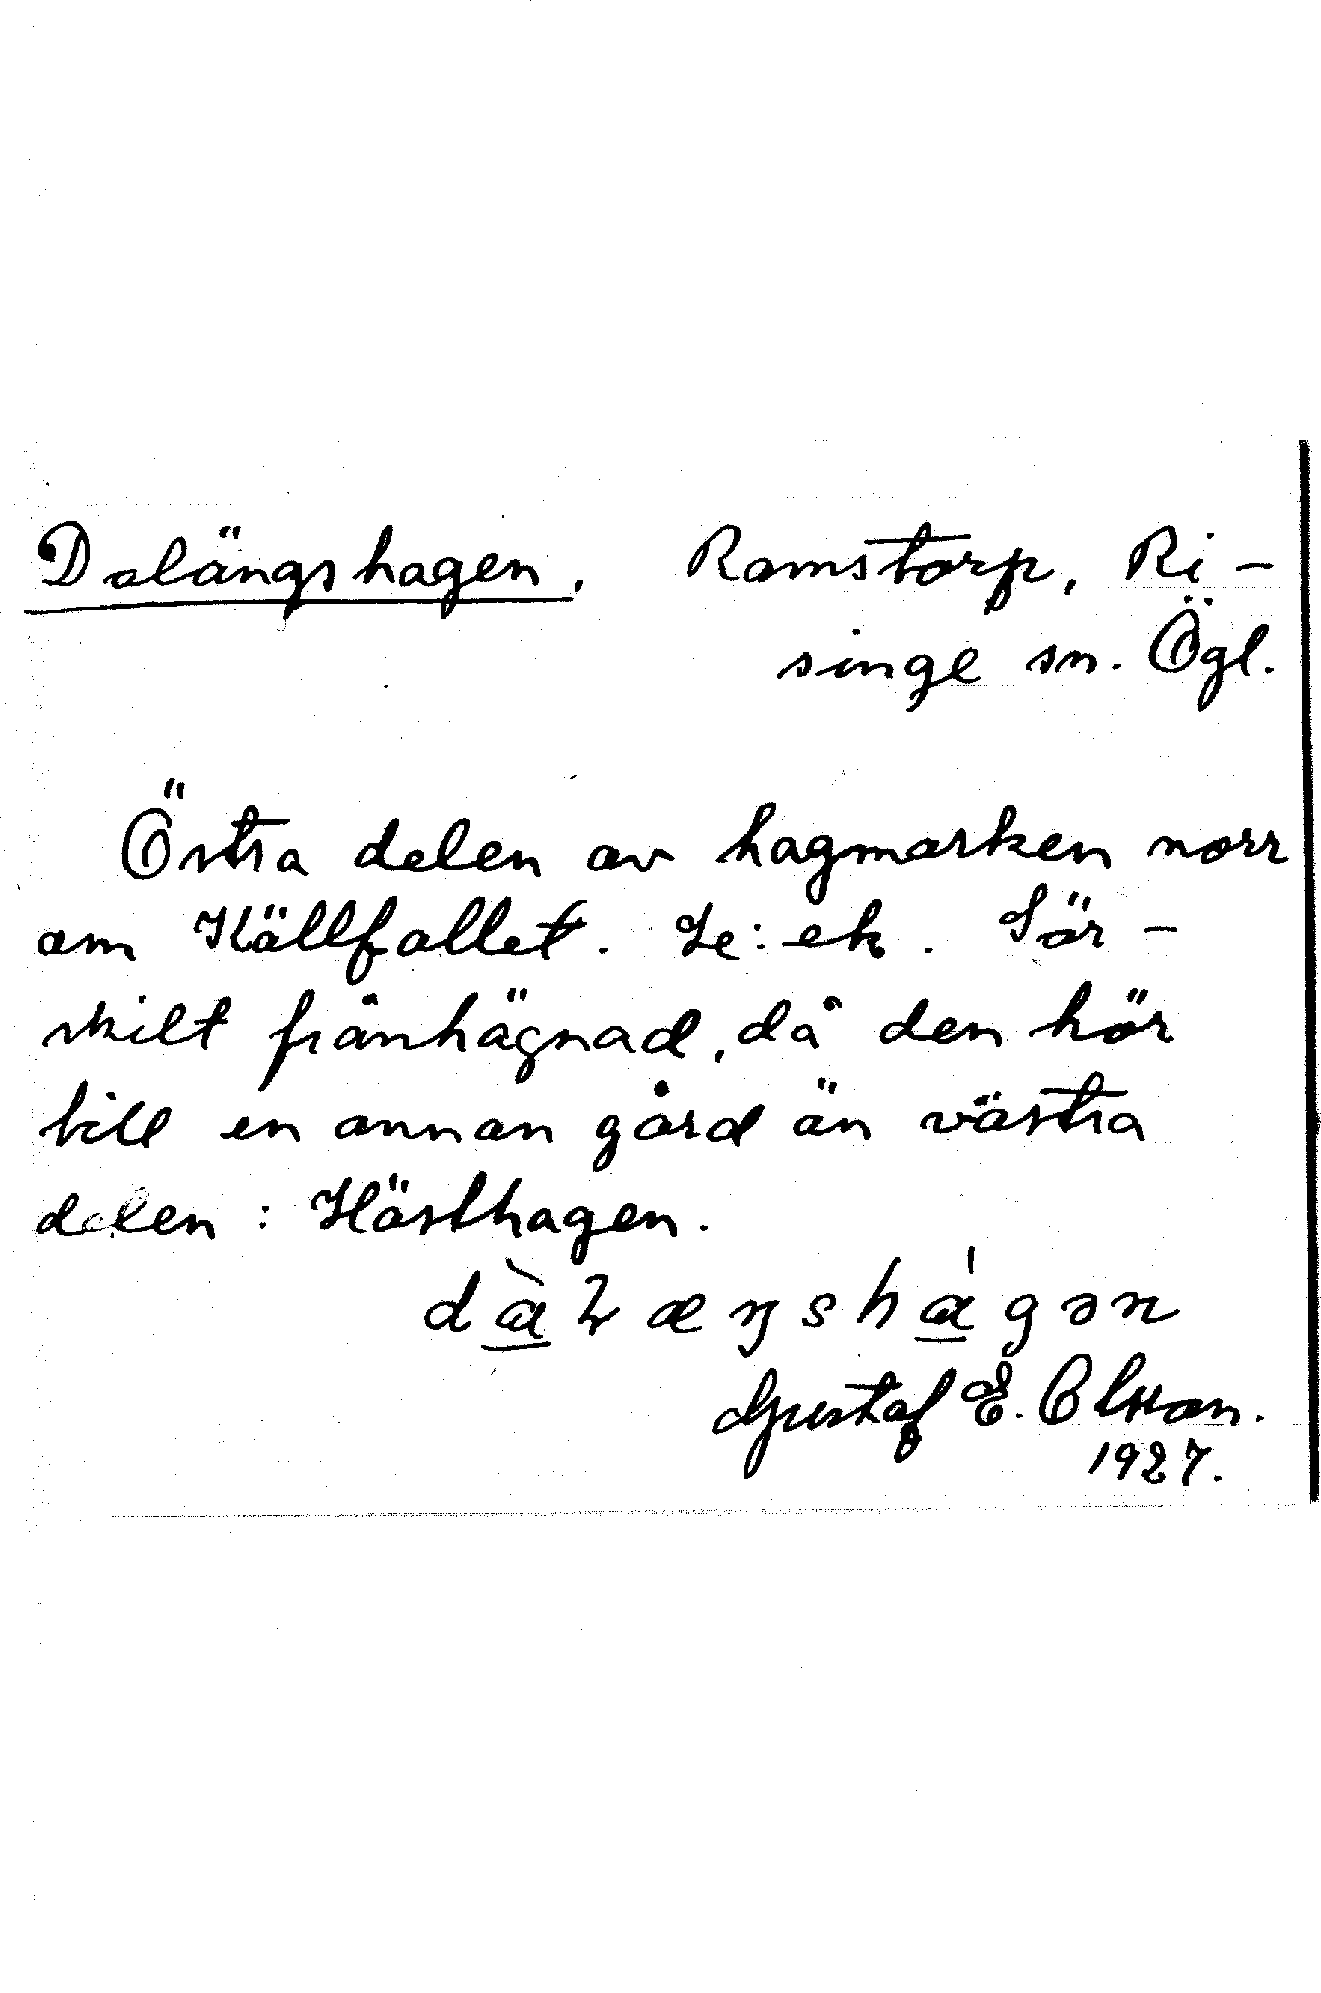 Dalängshagen, Ramstorp, Ri-
singe sn. Ögl.
Östra delen av hagmarken norr
om Källfallet. Le: ek. Sär-
skilt frånhägnad, då den hör
till en annan gård än västra
delen: Hästhagen.
Gustaf E. Olsson.
1927.